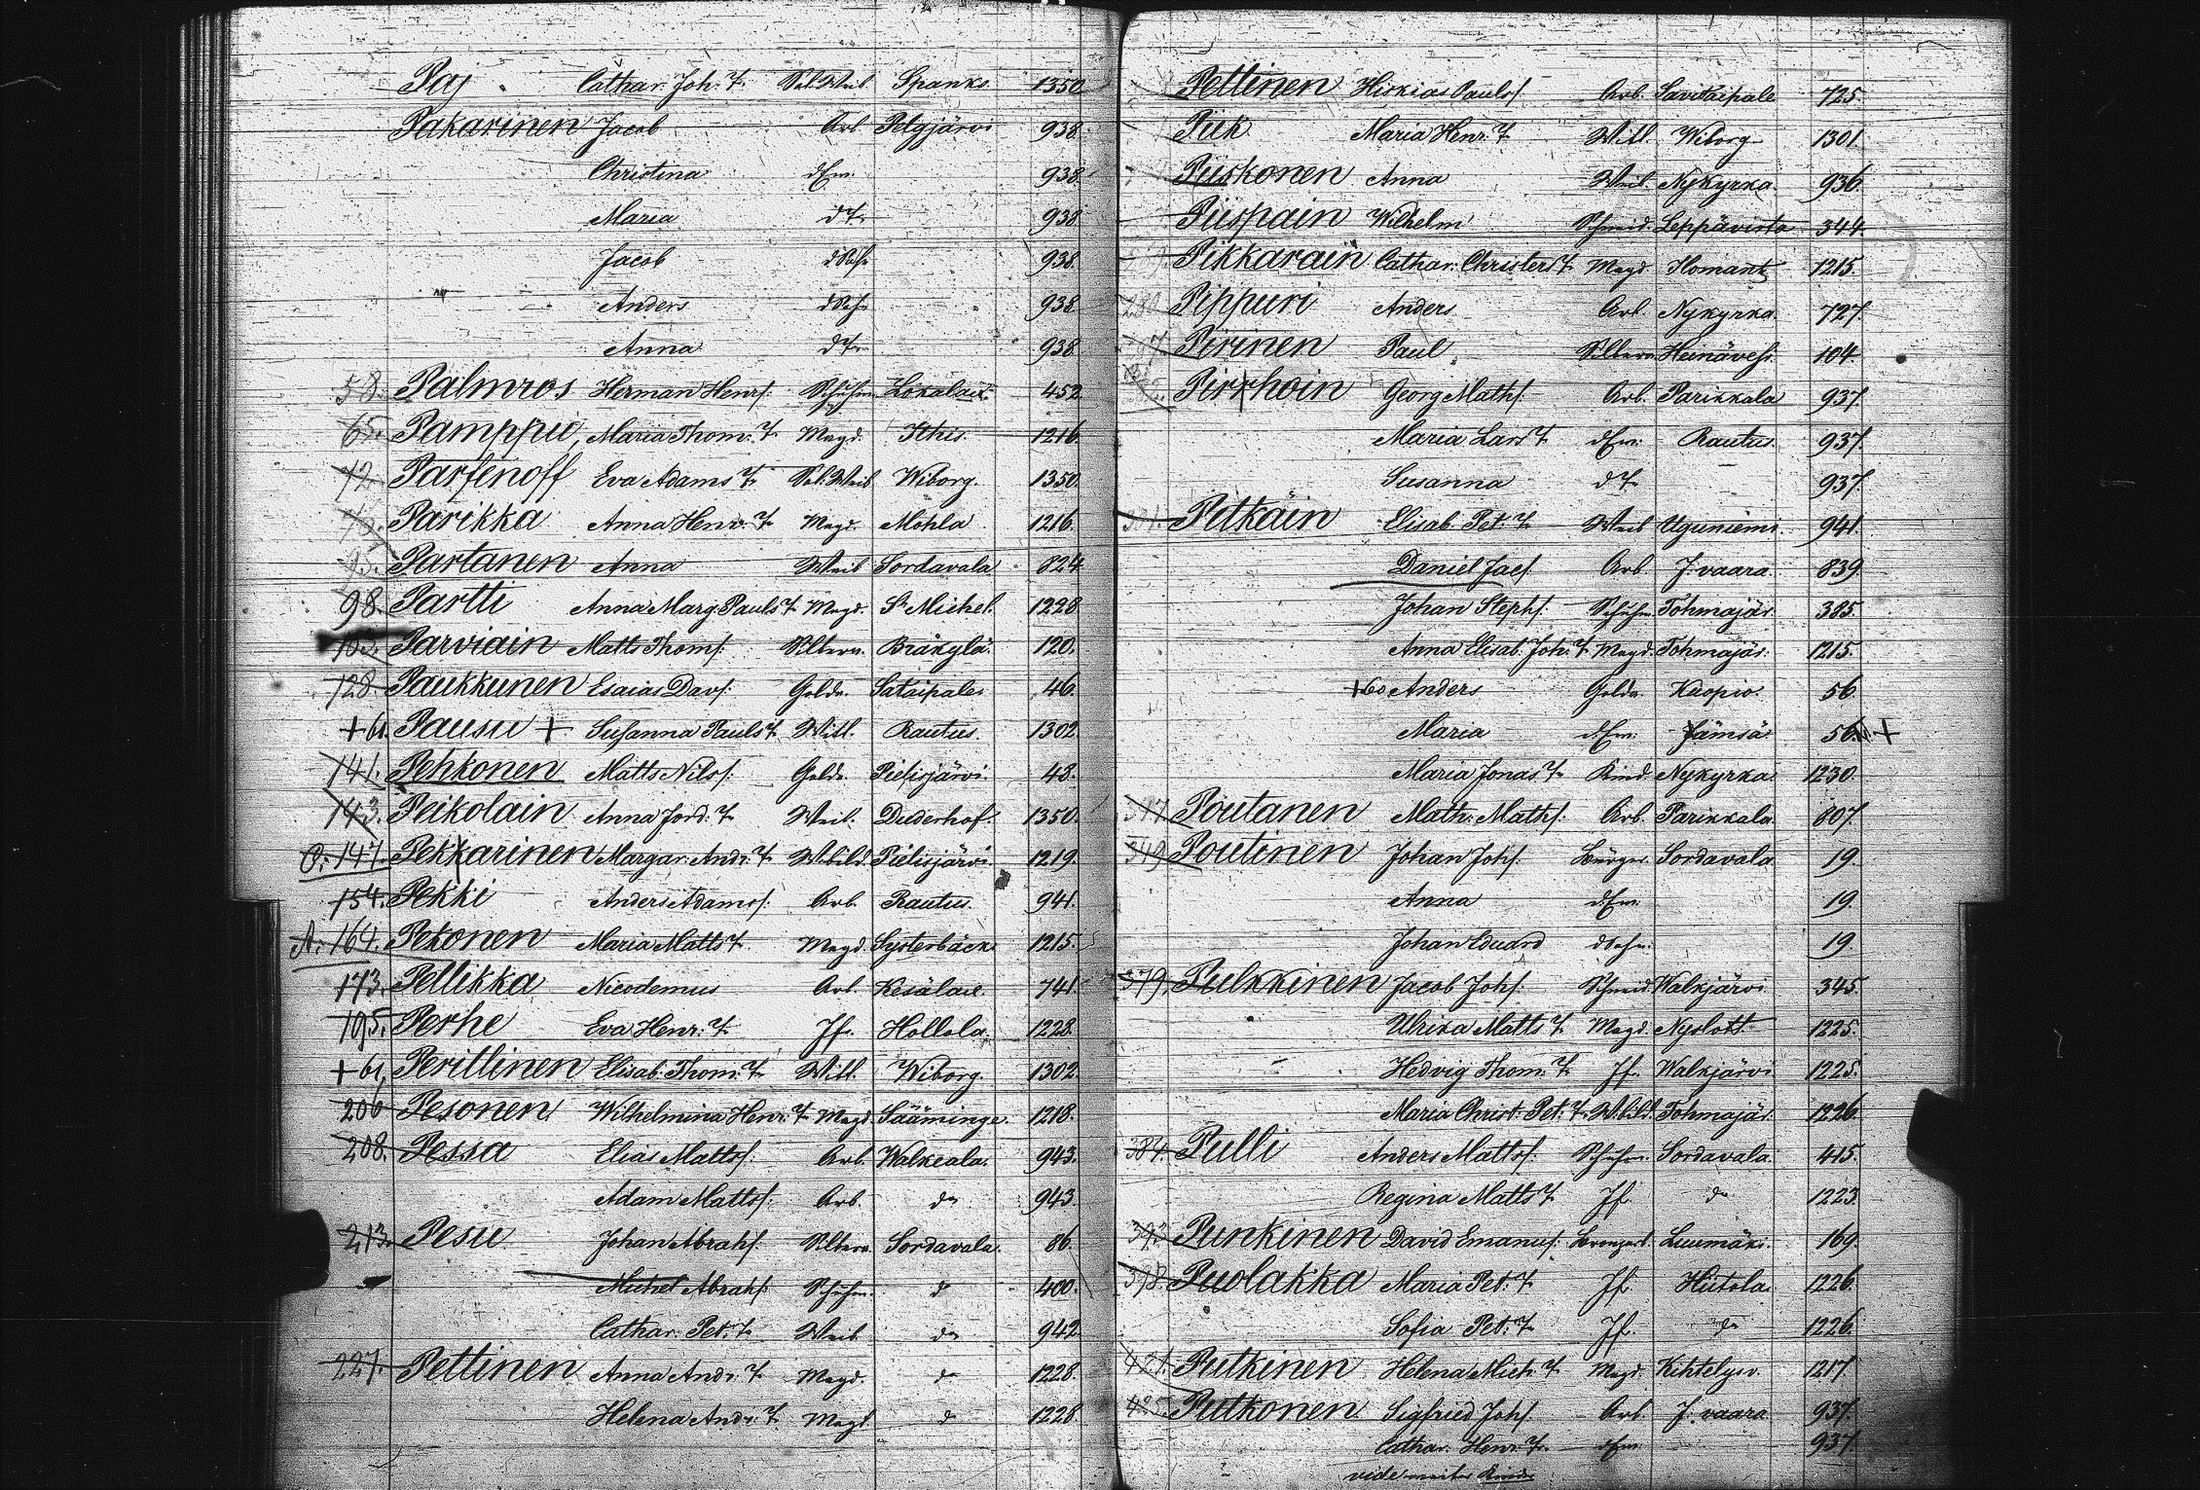 Paj Cathar. Joh. T. Sol. Weib. Spanko. 1350
Pakarinen Jacob Arb. Pelgjärvi 938.
Christina d. Em. 938.
Maria d. T. 938
Jacob d. Sohn 938.
Anders d. Sohn 938
Anna d. T. 938
58. Palmros Herman Henrs. Schuhm. Lokalax. 452
65. Pamppu, Maria Thom. T. Magd. Ithis. 1216
72. Parfenoff Eva Adams T. Sol. Weib Wiborg. 1350.
Parikka Anna Henr. T. Magd. Mohla 1216.
95. Partanen Anna Weib Sordavala 824
98. Partti Anna Marg. Pauls T. Magd. St. Michel. 1228
103. Parviain Matts Thoms. Silberar. Bräkylä. 120.
128. Paukkunen Esaias Davs. Golda. Sataipale 46
+61. Pausu + Susanna Pauls T. Witt. Rautus. 1302.
141. Pehkonen Matts Nilss. Golda. Pielisjärvi 48.
143. Peikolain Anna Jord. T. Weib. Duderhof. 1350.
O. 147. Pekkarinen Margar. Andr. T. Wbild. Pielisjärvi. 1219.
154. Pekki Anders Adams. Arb. Rautus. 941.
A. 164. Pekonen Maria Matts T. Magd. Systerbäck 1215.
173. Pellikka Nicodemus Arb. Kesälax. 741.
195. Perhe Eva Henr. T. Jf. Hollola. 1228.
+61, Perittinen Elisab. Thom. T. Witt. Wiborg. 1302.
206 Pesonen Wilhelmina Henr. T. Magd. Sääminge. 1218.
208. Pessa Elias Matts. Arb. Walkeala. 943.
Adam Matts. Arb. do 943.
213. Pesu Johan Abrahs. Silberar. Sordavala. 86.
Michel Abrahs. Schuhm. d 400.
Cathar. Pet. T. Weib do 942
227. Pettinen Anna Andr. T. Magd. d 1228.
Helena Andr. T. Magd. d 1228
Pettinen Hiskias Pauls. Arb. Savitaipale 725.
Piek Maria Henr. T. Witt. Wiborg 1301.
Piiskonen Anna Weib. Nykyrka. 936.
Piispain Wilhelm Schneid. Leppävirta 344.
Pikkarain Cathar. Christers T. Magd Ilomants 1215.
280. Pippuri Anders Arb. Nykyrka. 727.
Pirinen Paul Silberar. Heinävesi. 104.
Pirrhoin Georg Maths. Arb. Parikkala 937.
Maria Lars T. d. Em. Rautus. 937.
Susanna d. T. 937.
Pitkäin Elisab. Pet. T. Weib Uguniemi. 941.
Daniel Jacs. Arb. J. vaara. 839
Johan Stephs. Schuhm. Tohmajär. 385.
Anna Elisab. Joh. T. Magd. Tohmajär. 1215.
+60 Anders Golda. Kuopio. 56.
Maria d. Em. Jämsä 56. +
Maria Jonas T. Kind Nykyrka. 1230.
347 Poutanen Math. Maths. Arb. Parikkala. 807.
349. Poutinen Johan Johs. Bürger. Sordavala. 19.
Anna d. Em. 19.
Johan Eduard d. Sohn. 19.
379. Pulkkinen Jacob Johs. Schneid. Walkjärvi 345.
Ulrika Matts T. Magd. Nyslott 1225.
Hedvig Thom. T. Jf. Walkjärvi 1225.
Maria Christ. Pet. T. Wbild. Tohmajär. 1226.
384. Pulli Anders Matts. Schuhm. Sordavala. 415.
Regina Matts T. Jf. do 1223
393. Punkinen David Emanus. Bronzarb. Luumäki. 169.
398. Puolakka Maria Pet. T. Jf. Hiitola. 1226.
Sofia Pet. T. Jf. do 1226.
421. Putkinen Helena Mich. T. Magd. Kihtelysv. 1217.
425. Putkonen Sigfried Johs. Arb. J. vaara 937.
Cathar. Henr. T. d. Em. 937.
vide weiter Kinder